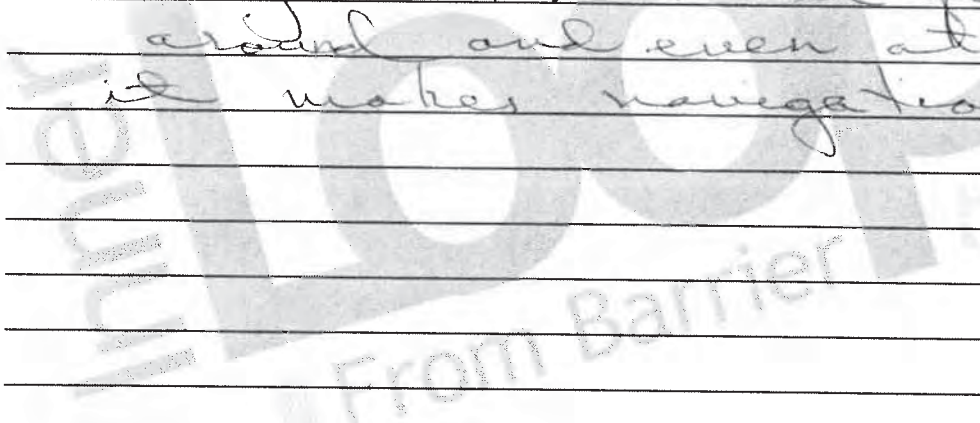 around and even at
it makes navigatio
Inner
Loop
From Barrier